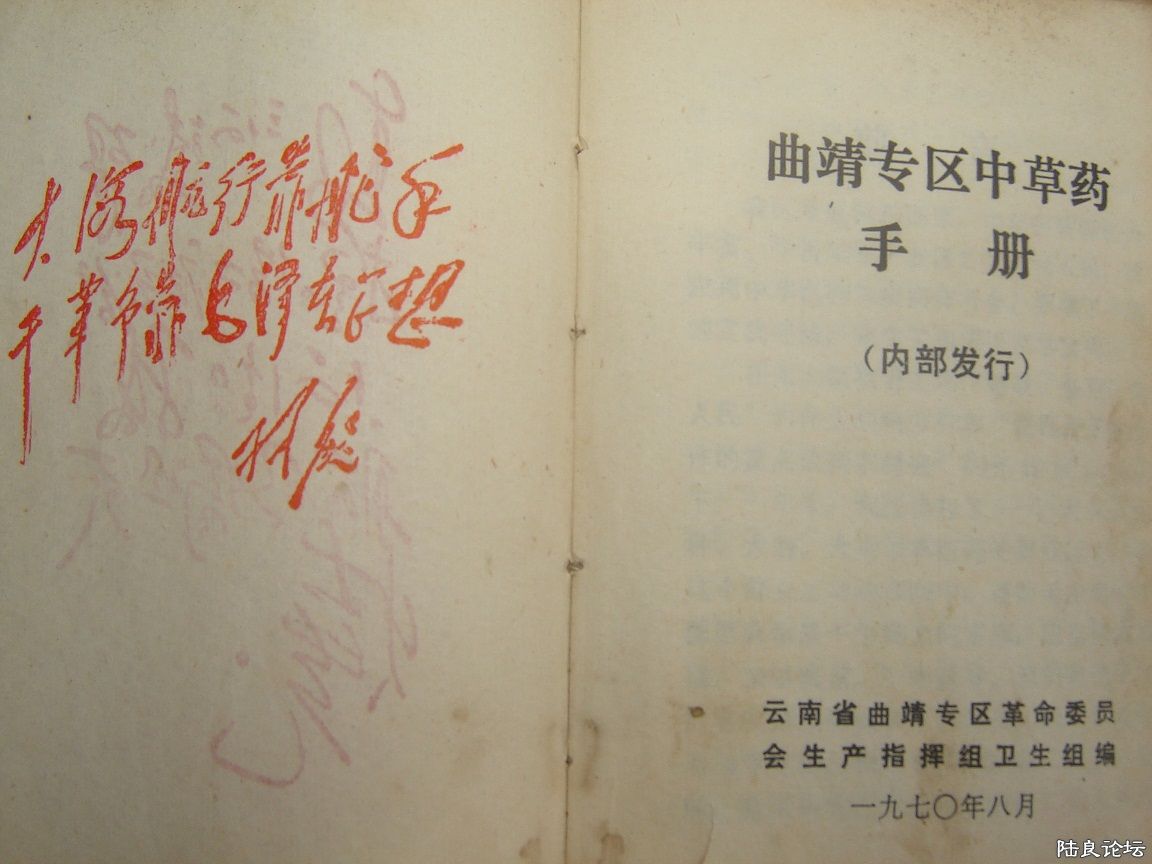 大海航行靠舵手
干革命靠毛泽东思想
林彪
曲靖专区中草药
手册
（内部发行）
云南省曲靖专区革命委员
会生产指挥组卫生组编
一九七〇年八月
陆良论坛